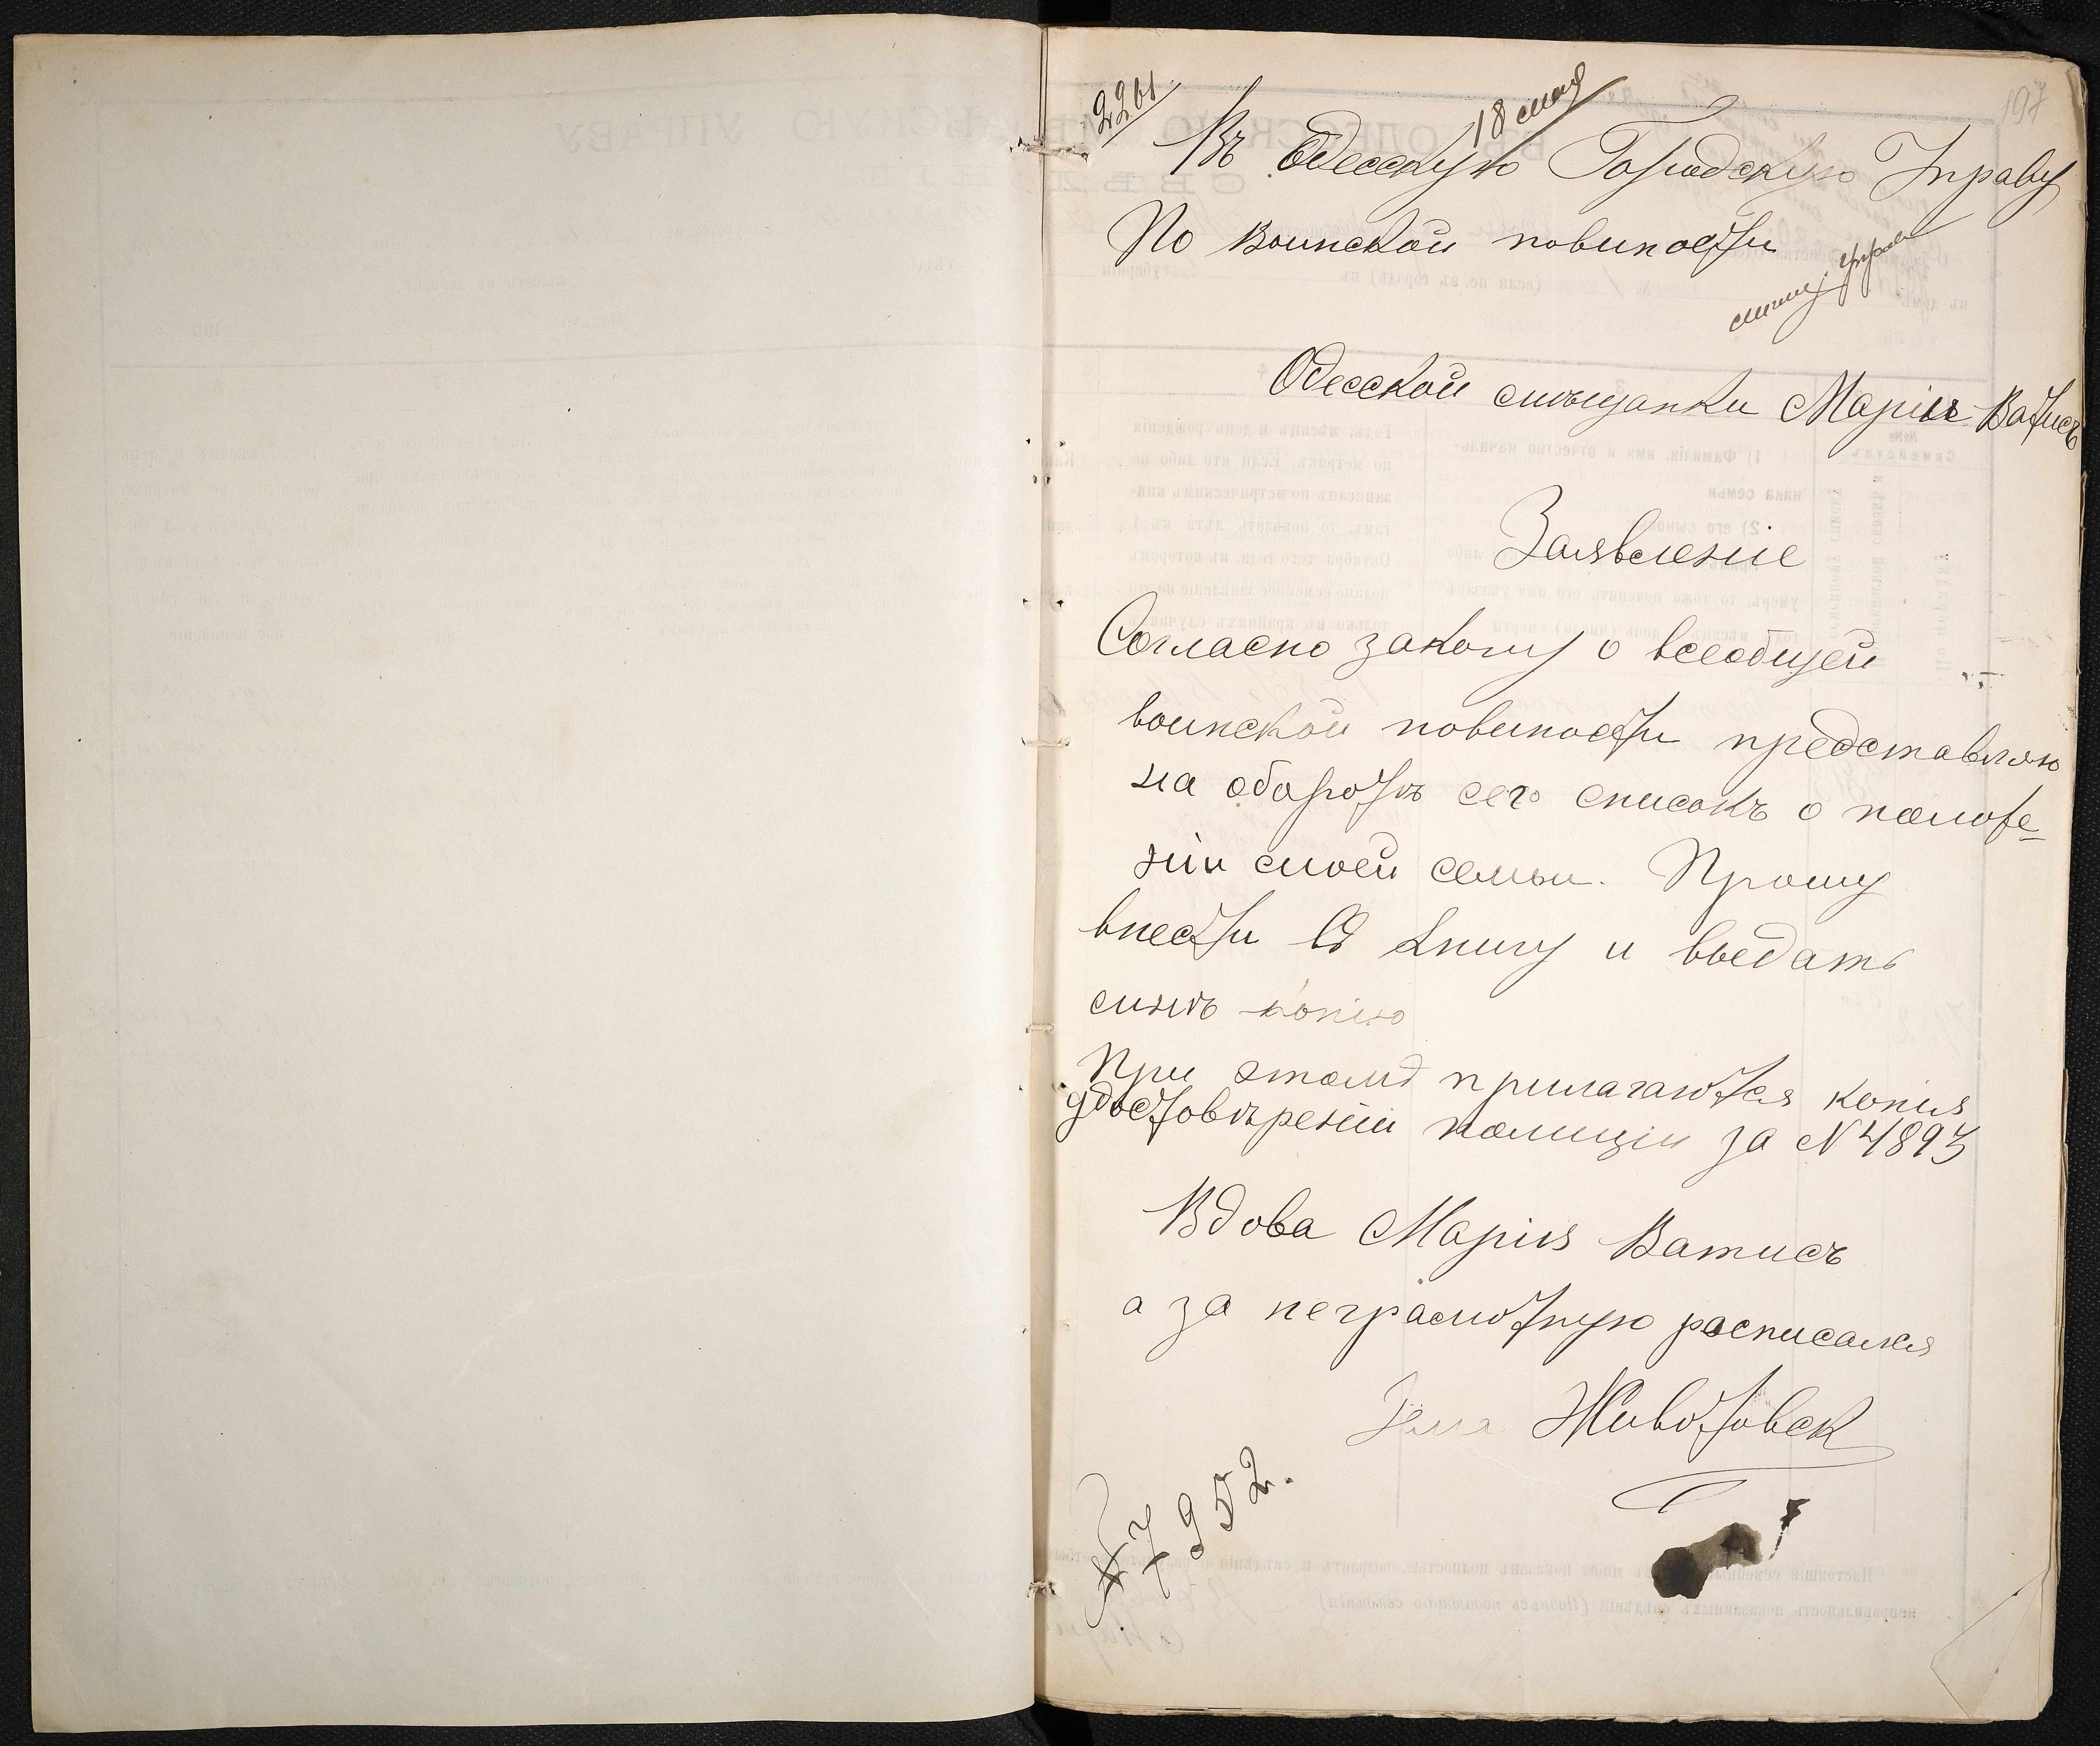 2261
18 мая
197
Въ Одесскую Городскую Управу
По воинской повиности
Одесской мѣщанки Маріи Ватисъ
Заявленіе
Согласно закону о всеобщей
воинской повиности представляю
на оборотѣ сего списокъ о положе-
ніи моей семьи. Прошу
внести въ книгу и выдать
мнѣ копію
При этомъ прилагаются копія
удостовѣреніи полиціи за № 4893
Вдова Марія Ватисъ
а за неграмотную росписался
Животовск
№ 7952.